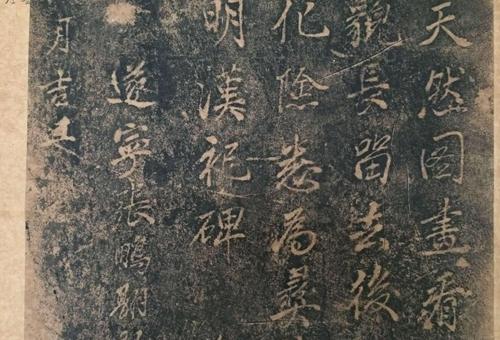 天然图畫看
觀長留去後
化險悉為彝
明漢祀碑
遂寧張鵬翮
月吉